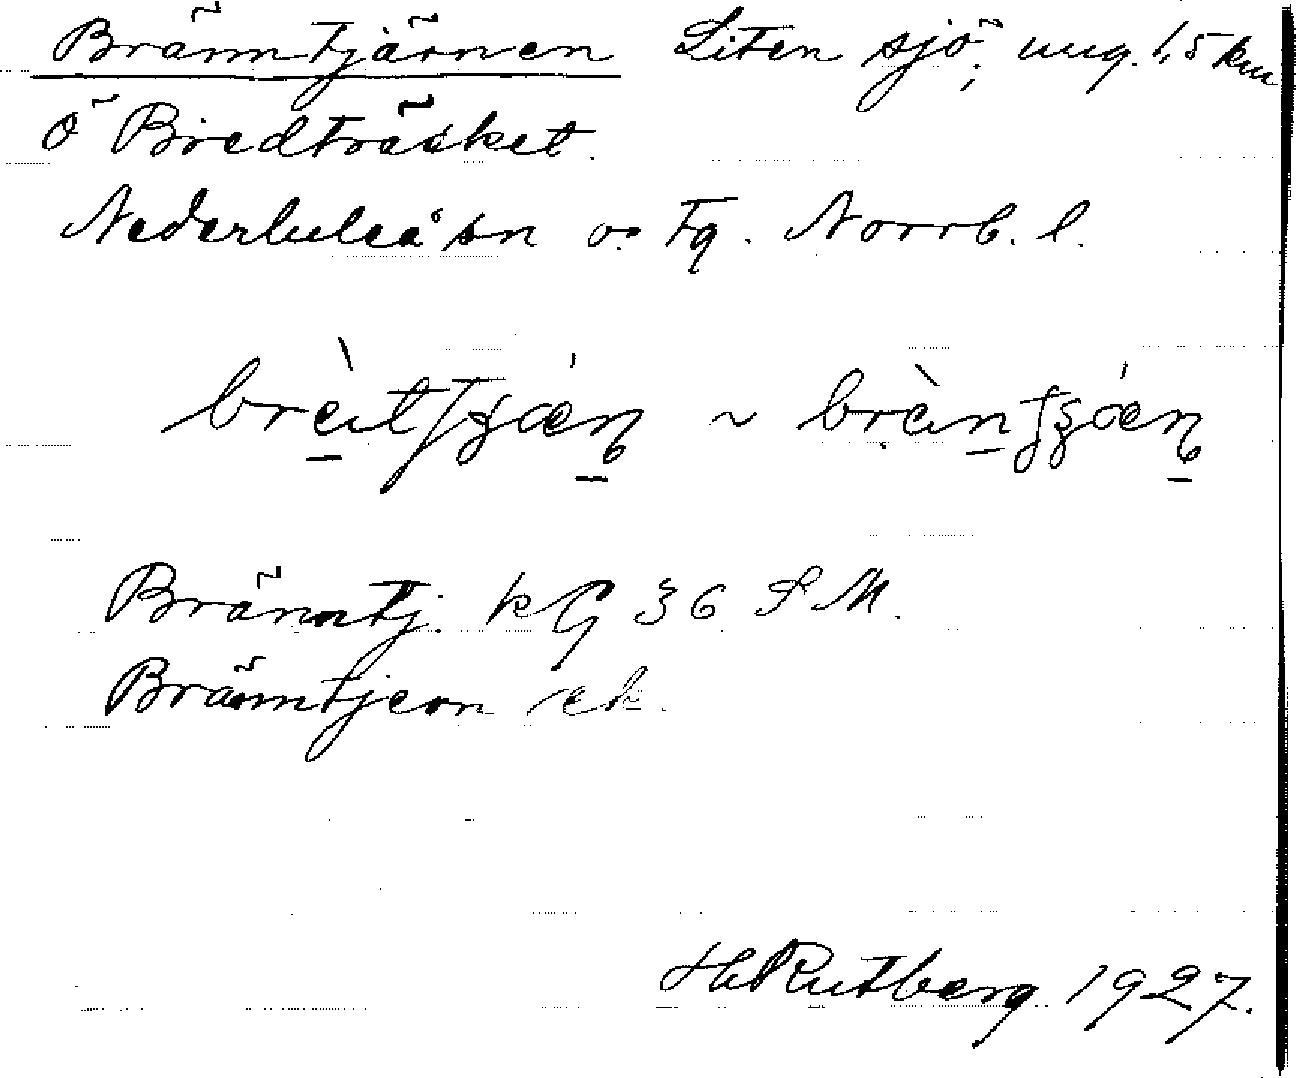 Bränntjärnen Liten sjö, ung. 1,5 km
Ö Bredträsket.
Nederluleå sn o. tg. Norrb. l.
Bränntj. kG 36 S M.
Bränntjern ek.
H Rutberg 1927.